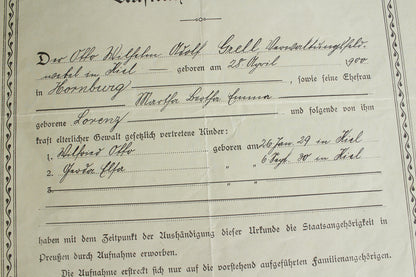 Der Otto Wilhelm Adolf Grell, Verwaltungsfeld-
webel in Kiel — geboren am 28. April 1900
in Hornburg —, sowie seine Ehefrau
Martha Bertha Emma
geborene Lorenz — und folgende von ihm
kraft elterlicher Gewalt gesetzlich vertretene Kinder:
1. Wilfried Otto geboren am 26. Jan. 29 in Kiel
2. Gerda Elsa " " 6. Sept. 30 in Kiel
3. " "
haben mit dem Zeitpunkt der Aushändigung dieser Urkunde die Staatsangehörigkeit in
Preußen durch Aufnahme erworben.
Die Aufnahme erstreckt sich nur auf die vorstehend aufgeführten Familienangehörigen.